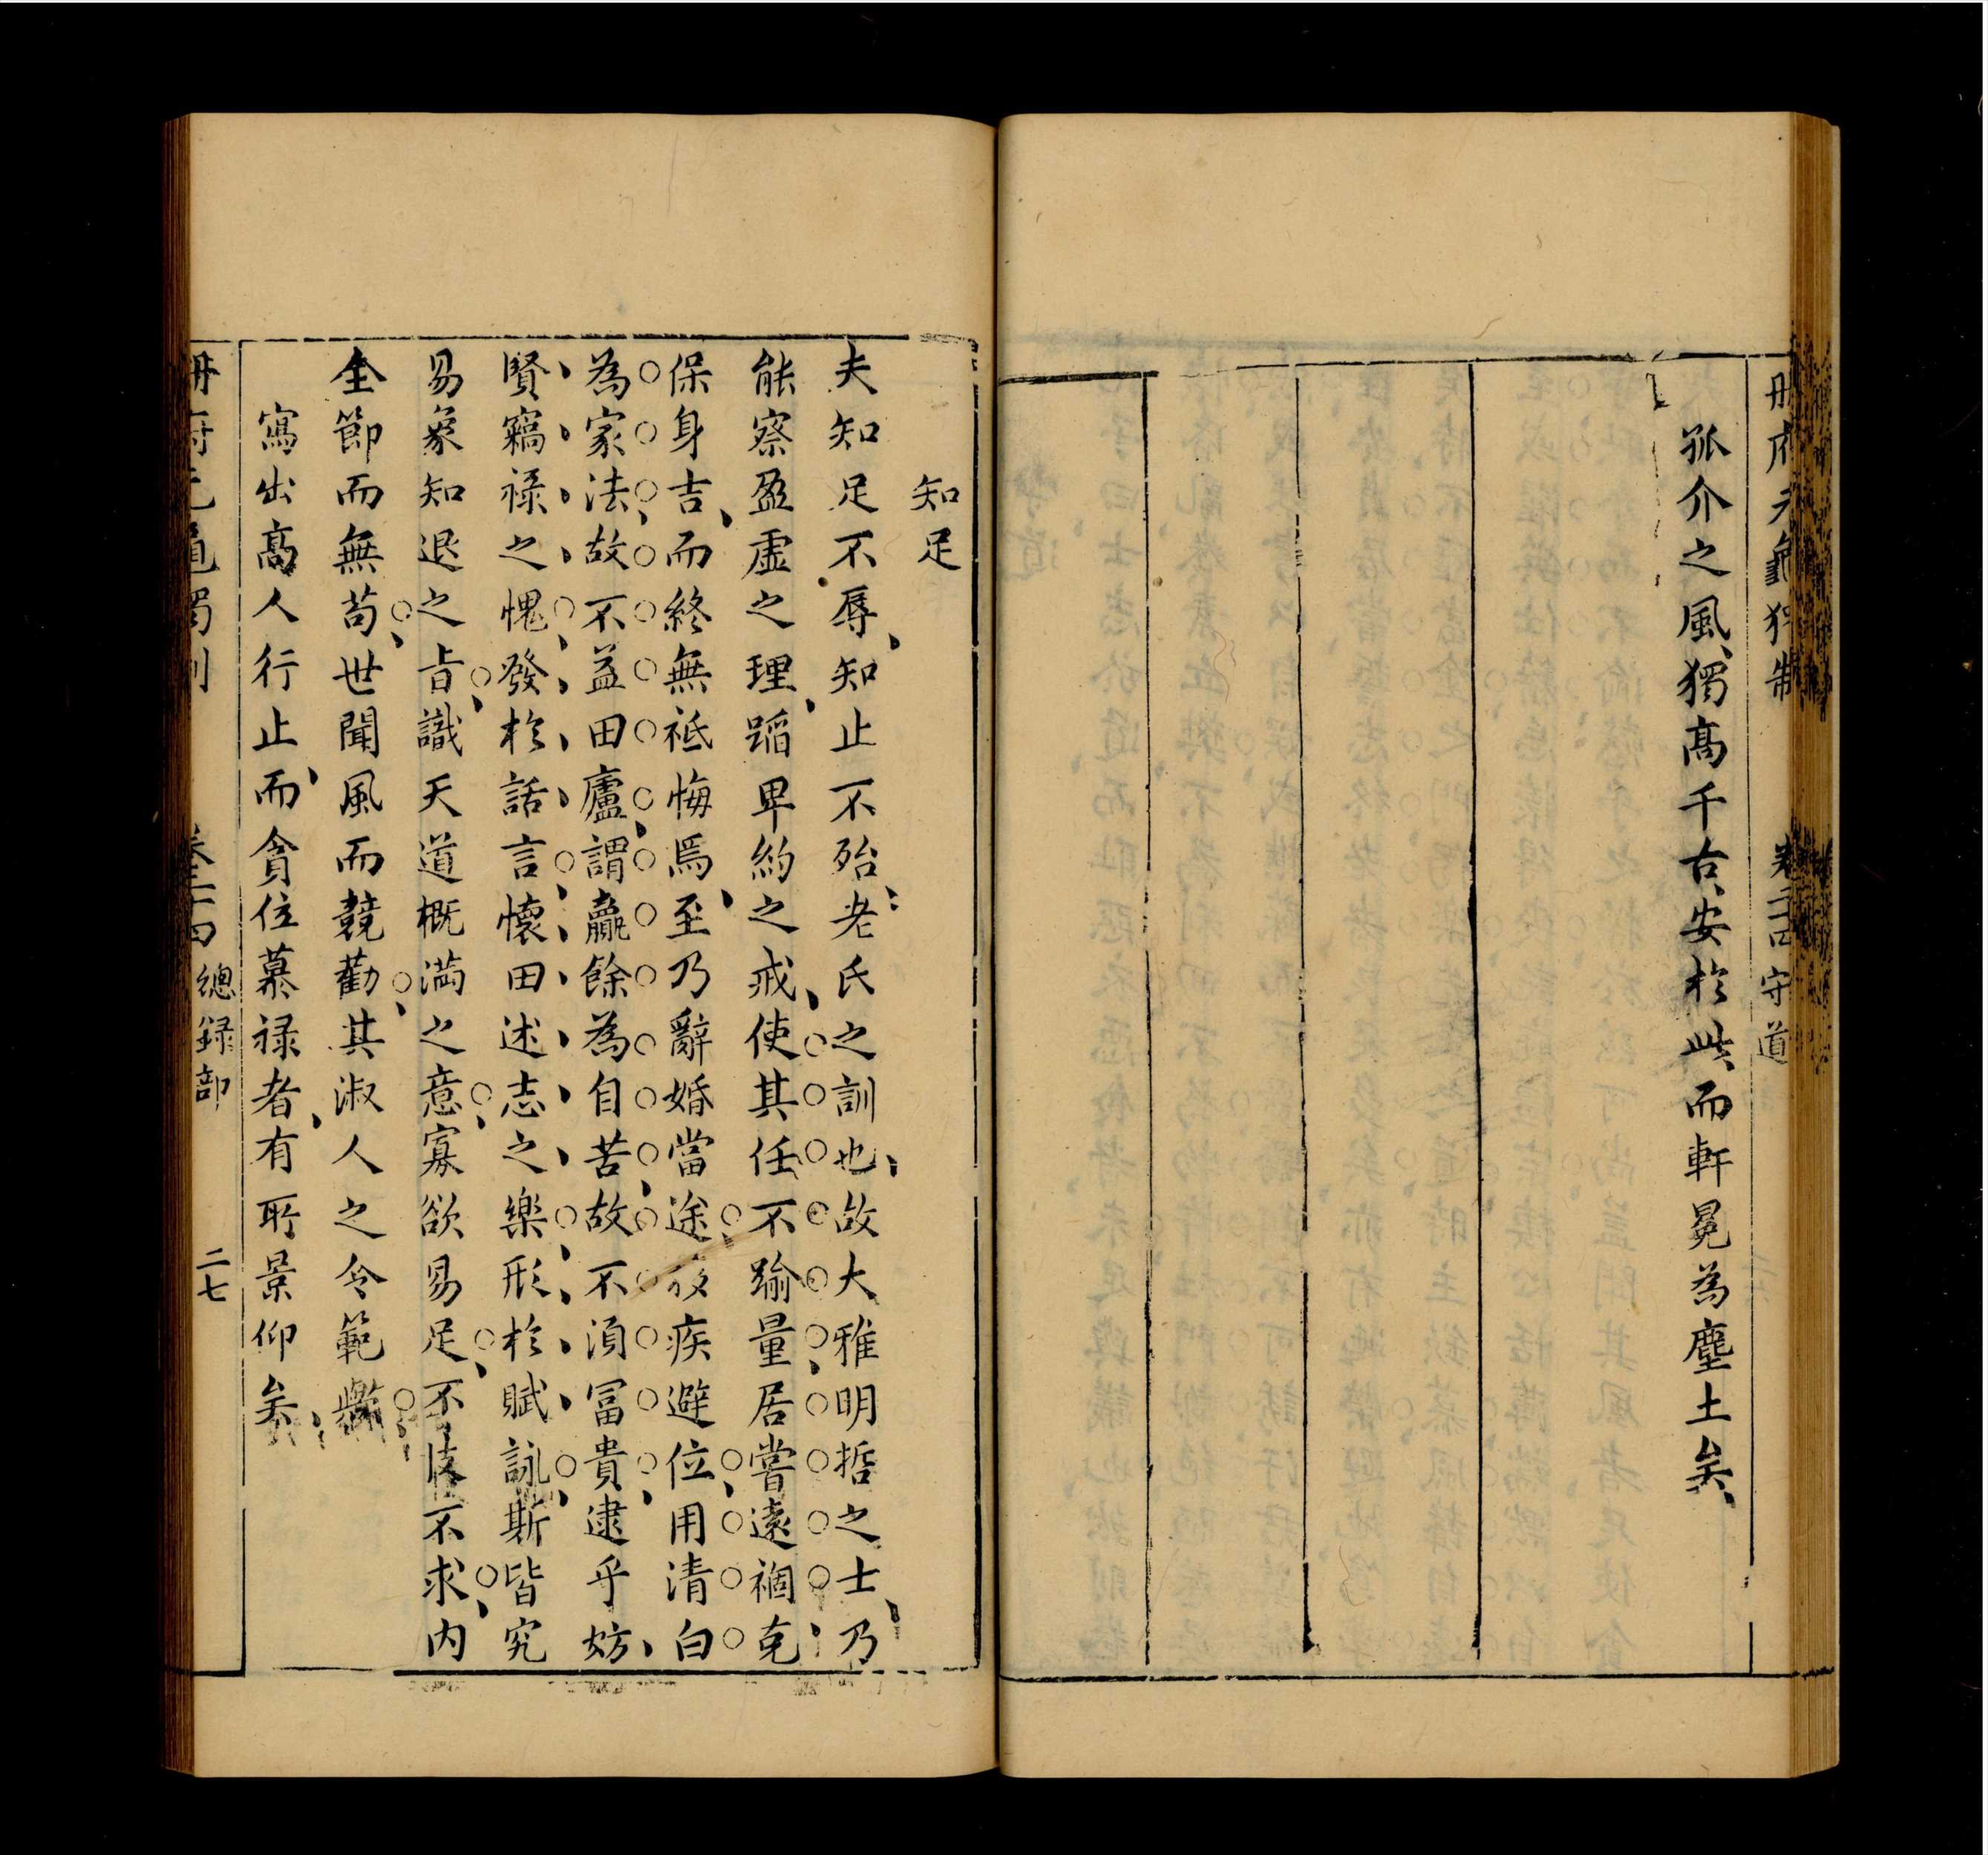 册府元龜獨制 卷二十四 守道
孤介之風獨髙千古安於此而軒冕為塵土矣
知足
夫知足不辱知止不殆老氏之訓也故大雅明哲之士乃
能察盈虛之理蹈卑約之戒使其任不踰量居嘗遠禍克
保身吉而終無祗悔焉至乃辭婚當途移疾避位用清白
為家法故不益田廬謂贏餘為自苦故不湏冨貴逮乎妨
賢竊禄之愧發於話言懷田述志之樂形於賦詠斯皆究
易象知退之㫖識天道概満之意寡欲易足不忮不求内
全節而無苟世聞風而競勸其淑人之令範歟
寫出髙人行止而貪位慕禄者有所景仰矣
册府元龜獨制 卷二十四 總録部 二七